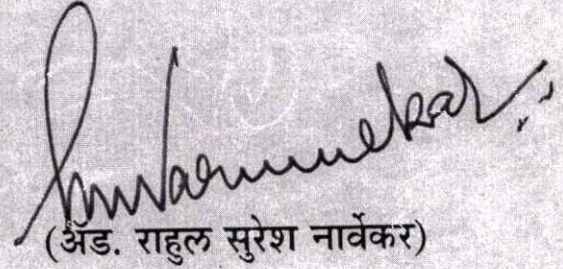 (ॲड. राहुल सुरेश नार्वेकर)